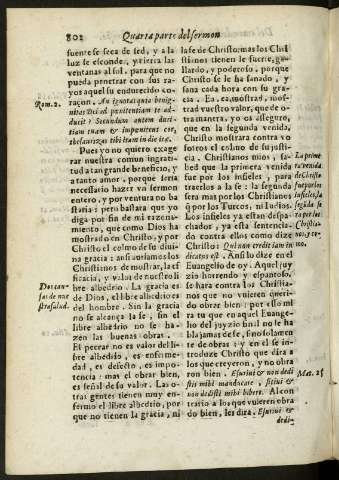 802
Quarta parte del sermon
fuente se seca de sed, y a la
luz se esconde, y cierra las
ventanas al sol, para que no
pueda penetrar con sus ra-
yos aquel su endurecido co-
raçon. An ignoras quia benig-
nitas Dei ad pœnitentiam te ad-
ducit? Secundum autem duri-
tiam tuam & impœnitens cor,
thesaurizas tibi iram in die iræ.
Pues yo no quiero exage
rar nuestra comun ingrati-
tud a tan grande beneficio, y
a tanto amor, porque seria
necessario hazer vn sermon
entero, y por ventura no ba
staria: pero bastara que yo
diga por fin de mi razona-
miento, que como Dios ha
mostrado en Christo, y por
Christo el colmo de su diui
na gracia: assi auriamos los
Christianos de mostrar, la ef
ficacia, y valor de nuestro li
bre albedrio. La gracia es
de Dios, el libre albedrio es
del hombre. Sin la gracia
no se alcança la fe, sin el
libre albedrio no se ha-
zen las buenas obras.
El pecar no es valor del li-
bre albedrio, es enferme-
dad, es defecto, es impo-
tencia: mas el obrar bien,
es señal de su valor. Las o-
tras gentes tienen muy en-
fermo el libre albedrio, por
que no tienen la gracia, ni
Rom. 2.
la fe de Christo: mas los Chri
stianos tienen le fuerte, ga-
llardo, y poderoso, porque
Christo se le ha sanado, y
sana cada hora con su gra-
cia. Ea, ea, mostrad, mos-
trad vuestro valor, que de o-
tra manera, yo os asseguro,
que en la segunda venida,
Christo mostrara contra vo
sotros el colmo de su justi-
cia. Christianos mios, sa-
bed que la primera venida
fue por los infieles, para
traerlos a la fe: la segunda
sera mas por los Christianos
q̃ por los Turcos, ni Iudios.
Los infieles ya estan despa-
chados, y esta dada senten-
cia contra ellos como dize
Christo: Qui non credit iam in-
dicatus est. Assi lo dize en el
Euangelio de oy. Aquel juy
zio horrendo y espantoso,
se hara contra los Christia-
nos que no vuieren queri-
do obrar bien: por esso mi
ra tu que en aquel Euange-
lio del juyzio final no se ha
bla jamas de fe, sino solamen
te de obras: y en el se in-
troduze Christo que dira a
los que creyeron, y no obra
ron bien. Esuriui & non dedi
stis mihi manducare, sitiui &
non dedistis mihi bibere. Al con
trario a los que vuieren obra
do bien, les dira. Esuriui &
dedi-
Mat. 25